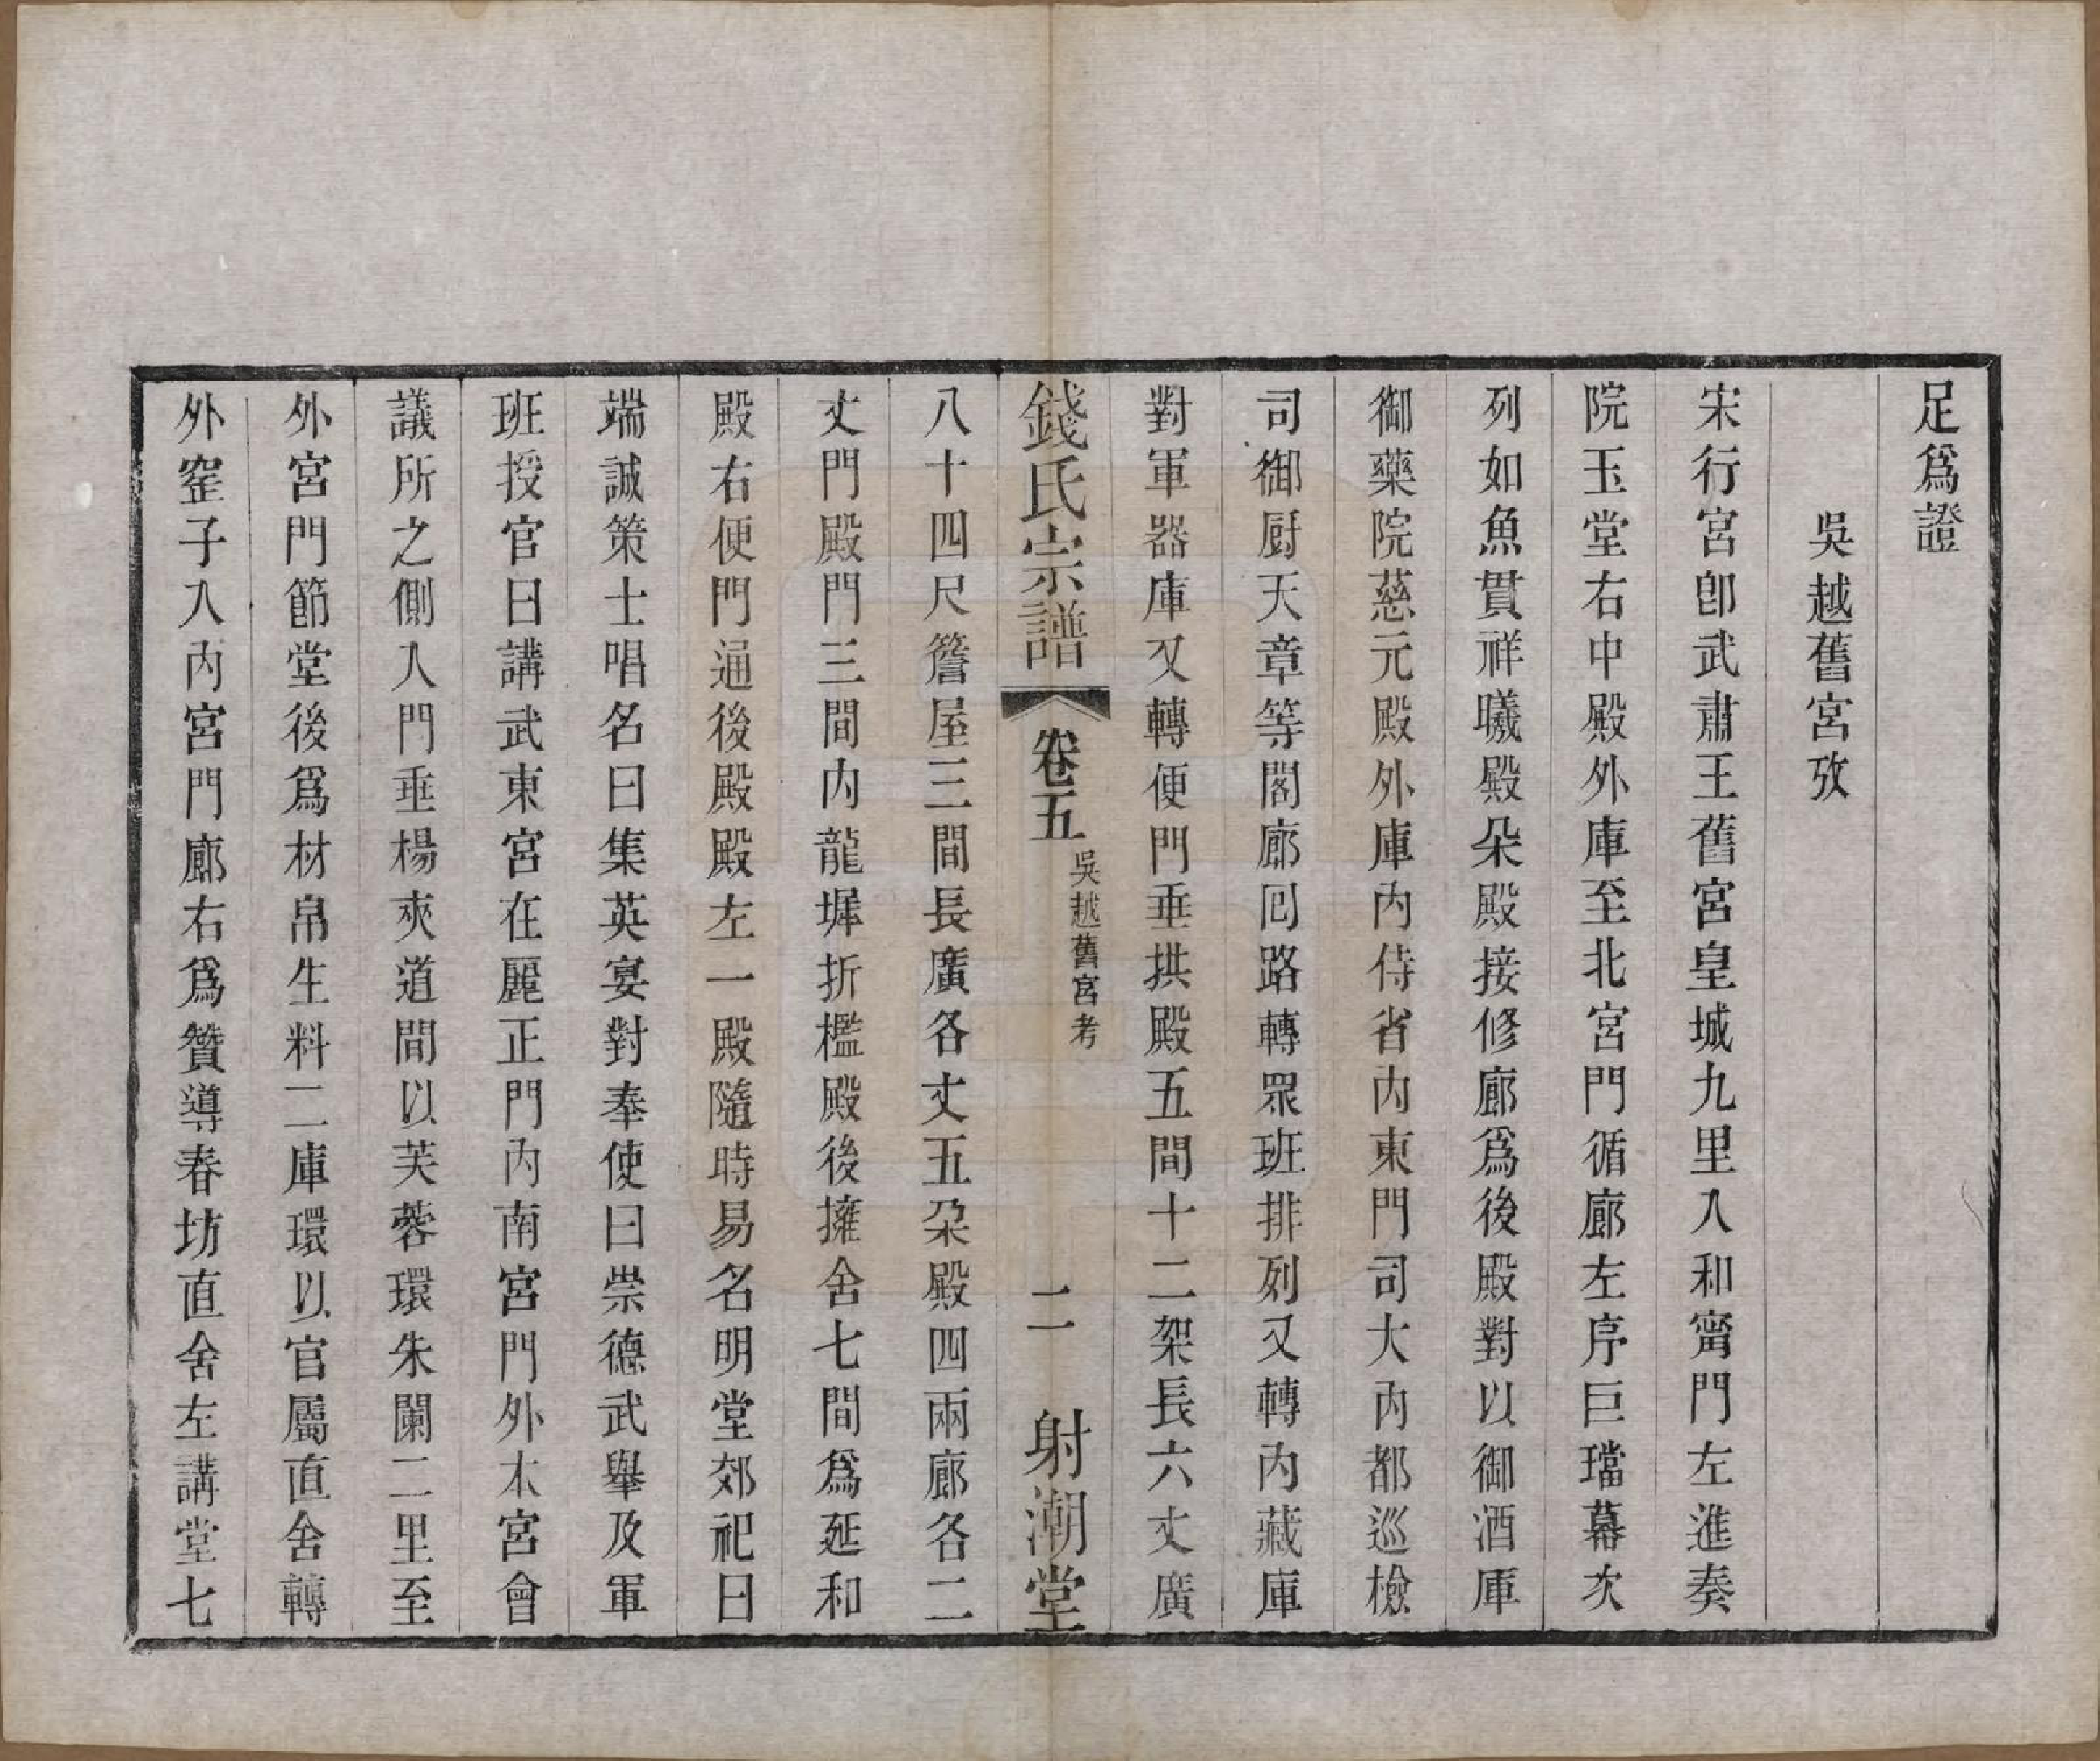 足爲證
吳越舊宮攷
宋行宮卽武肅王舊宮皇城九里入和甯門左進奏
院玉堂右中殿外庫至北宮門循廊左序巨璫幕次
列如魚貫祥曦殿朵殿接修廊爲後殿對以御酒庫
御藥院慈元殿外庫內侍省內東門司大內都巡檢
司御厨天章等閣廊回路轉眾班排列又轉內藏庫
對軍器庫又轉便門垂拱殿五間十二架長六丈廣
錢氏宗譜 卷五 吳越舊宮考 二 射潮堂
八十四尺簷屋三間長廣各丈五朶殿四兩廊各二
丈門殿門三間內龍墀折檻殿後擁舍七間爲延和
殿右便門通後殿殿左一殿隨時易名明堂郊祀曰
端誠策士唱名曰集英宴對奉使曰崇德武舉及軍
班授官曰講武東宮在麗正門內南宮門外本宮會
議所之側入門垂楊夾道間以芙蓉環朱闌二里至
外宮門節堂後爲材帛生料二庫環以官屬直舍轉
外窰子入內宮門廊右爲贊導春坊直舍左講堂七